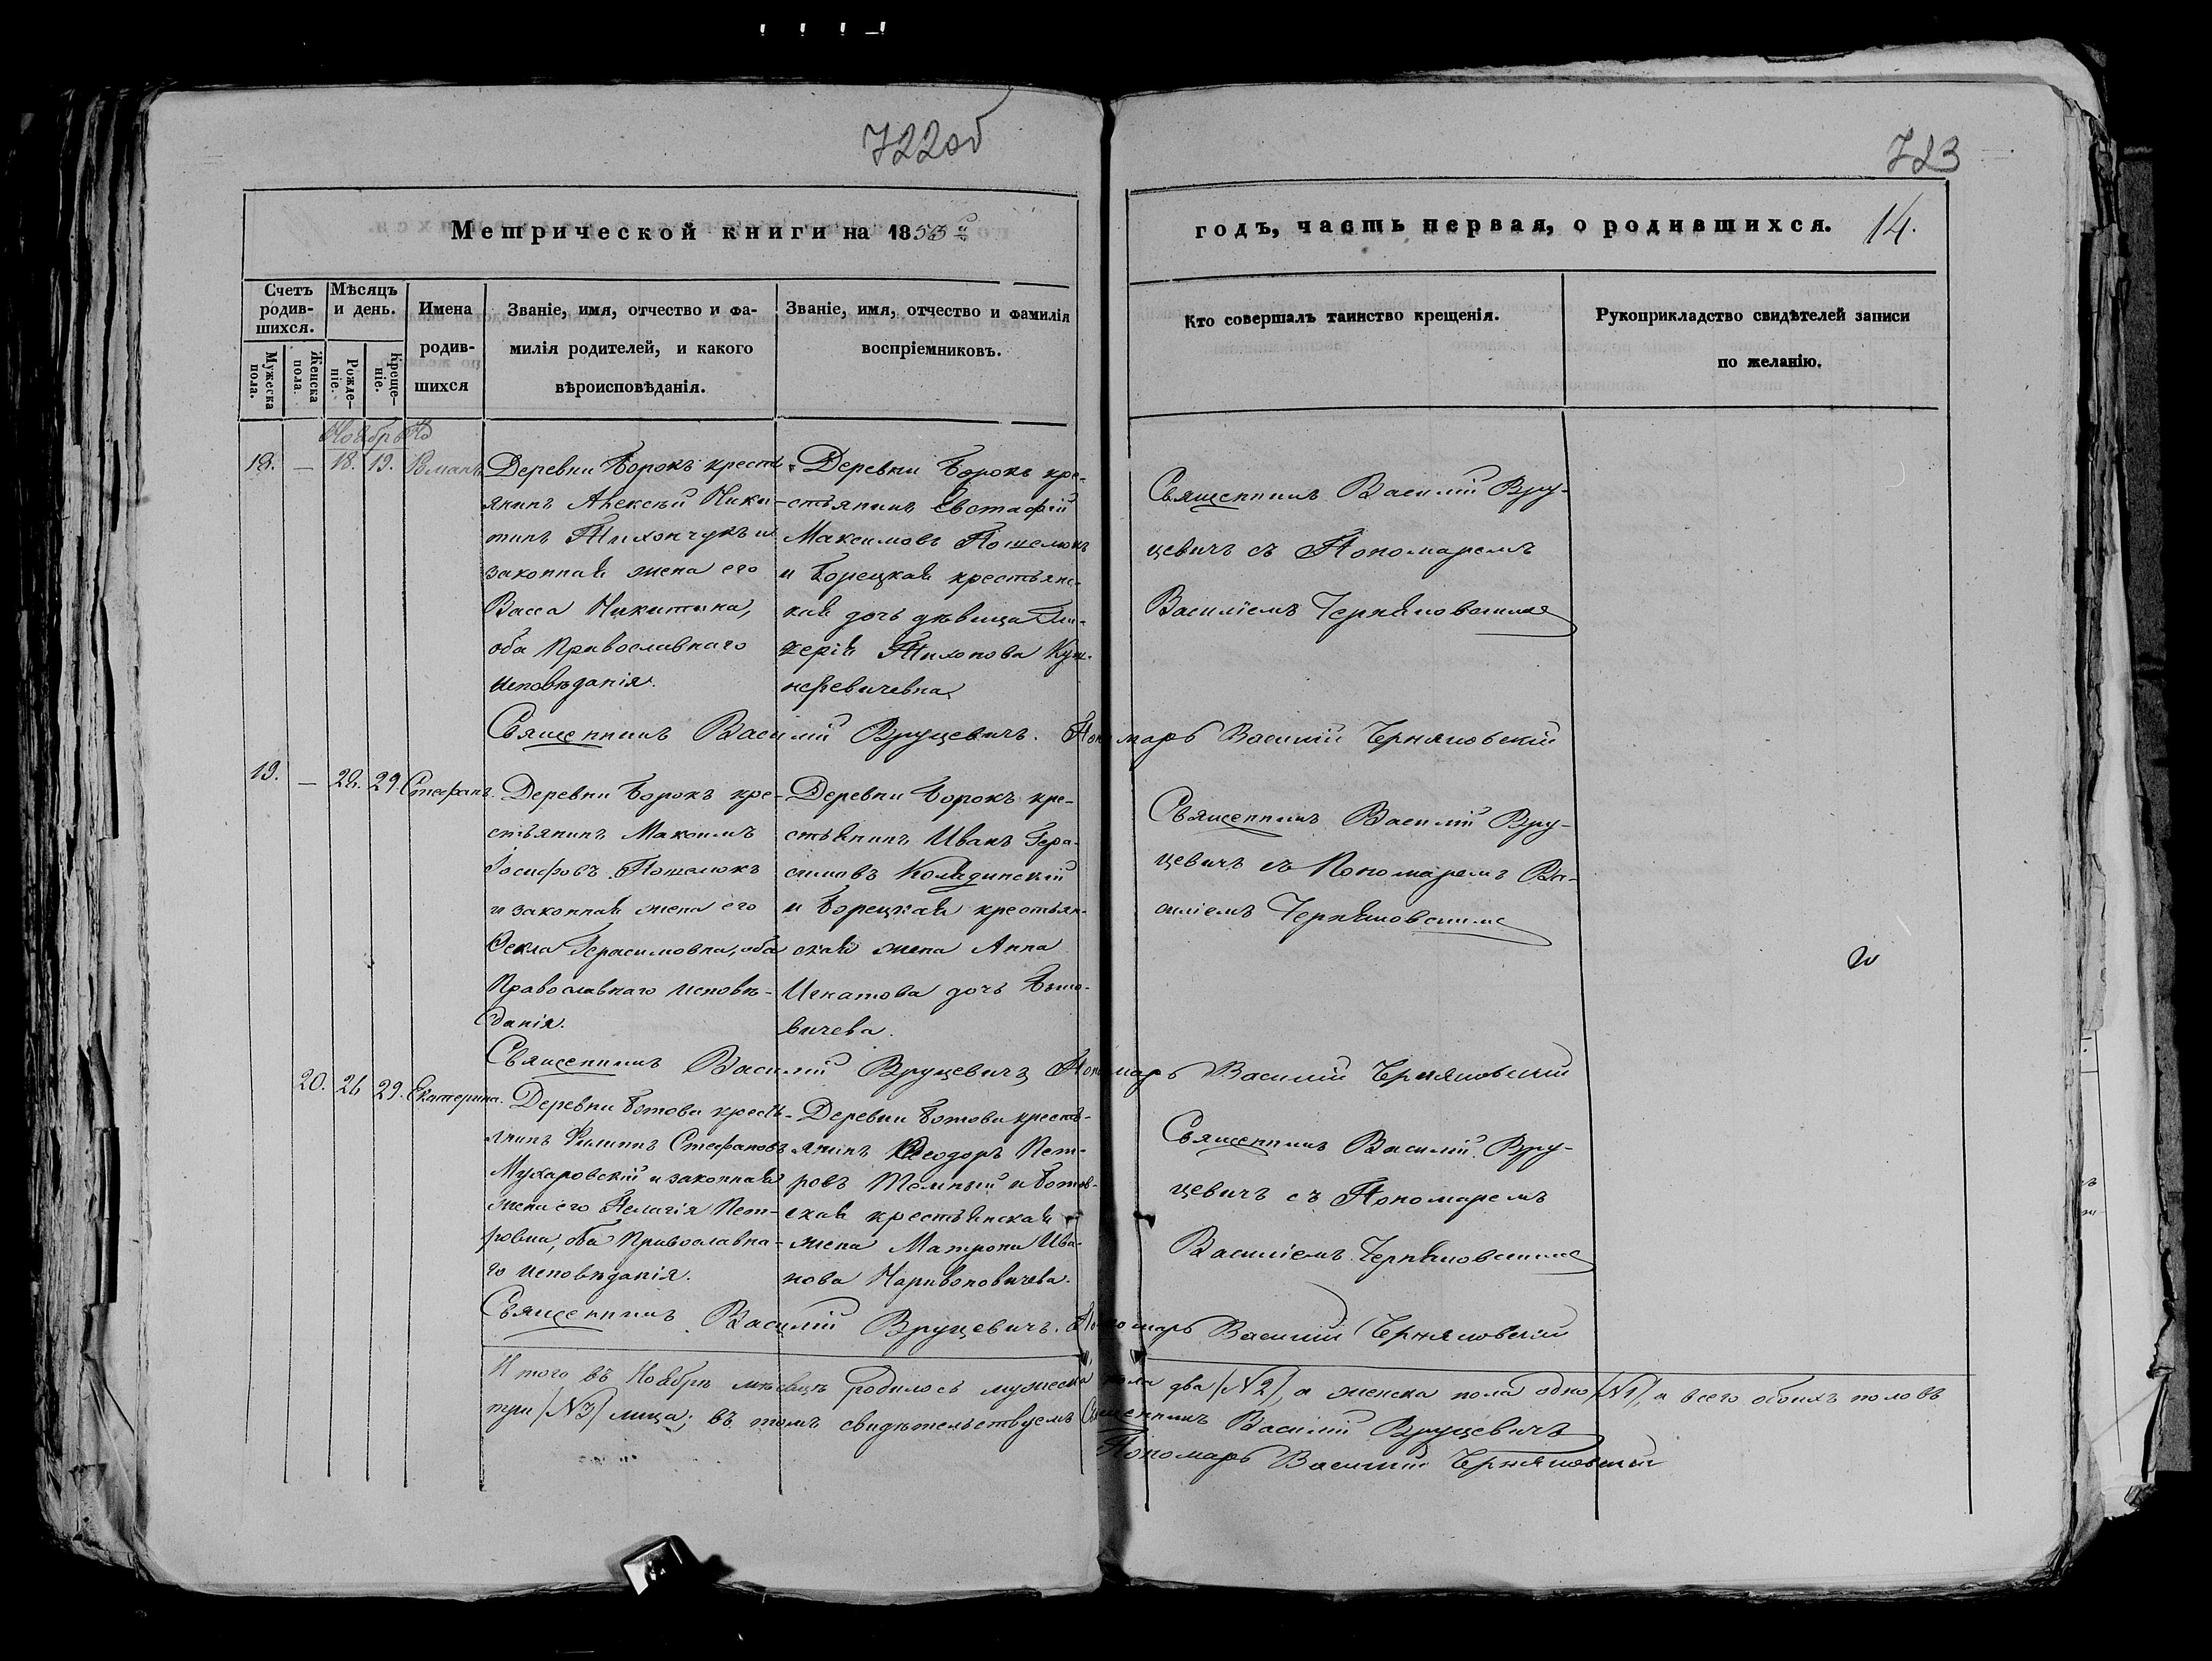 722об
723
Метрической книги на 1853й
годъ, часть первая, о родившихся. 14.
Счетъ родившихся.
Мужеска пола.
Женска пола.
Мѣсяцъ и день.
Рожденіе.
Крещеніе.
Имена родившихся
Званіе, имя, отчество и фамилія родителей, и какого вѣроисповѣданія.
Званіе, имя, отчество и фамилія воспріемниковъ.
Кто совершалъ таинство крещенія.
Рукоприкладство свидѣтелей записи по желанію.
Ноябрь
18. — 18. 19. Романъ
Деревни Борокъ кресть-
янинъ Алексѣй Ники-
тинъ Тихончукъ и
законная жена его
Васса Никитина,
оба Православнаго
исповѣданія.
Деревни Борокъ кре-
стьянинъ Евстафій
Максимовъ Пошелюкъ
и Борецкая крестьянс-
кая дочь дѣвица Гли-
керія Тихонова
Священникъ Василій Вру-
цевичъ съ Пономаремъ
Василіемъ Черняковскимъ
Священникъ Василій Вруцевичъ. Пономарь Василій Черняковскій
19. — 28. 29. Стефанъ.
Деревни Борокъ кре-
стьянинъ Максимъ
Іосифовъ Пошелюкъ
и законная жена его
Ѳекла Герасимовна, оба
Православнаго исповѣ-
данія.
Деревни Борокъ кре-
стьянинъ Иванъ Гера-
симовъ Колядинскій
и Борецкая крестьян-
ская жена Анна
Игнатова дочь
вичева.
Священникъ Василій Вру-
цевичъ съ Пономаремъ Ва-
силіемъ Черняковскимъ
Священникъ Василій Вруцевичъ Пономарь Василій Черняковскій
20. 26 29. Екатерина.
Деревни Ботова кресть-
янинъ Филиппъ Стефановъ
Мухаровскій и законная
жена его Пелагія Пет-
ровна, оба Православна-
го исповѣданія.
Деревни Ботова кресть-
янинъ Ѳеодоръ Пет-
ровъ Темный и Ботов-
ская крестьянская
жена Матрона Ива-
нова Наривоновичева.
Священникъ Василій Вру-
цевичъ съ Пономаремъ
Василіемъ Черняковскимъ
Священникъ Василій Вруцевичъ. Пономарь Василій Черняковскій
Итого въ Ноябрѣ мѣсяцѣ родилось мужеска пола два /№2/, а женска пола одно /№1/, а всего обоихъ половъ
три /№3/ лица; въ томъ свидѣтельствуемъ Священникъ Василій Вруцевичъ
Пономарь Василій Черняковскій